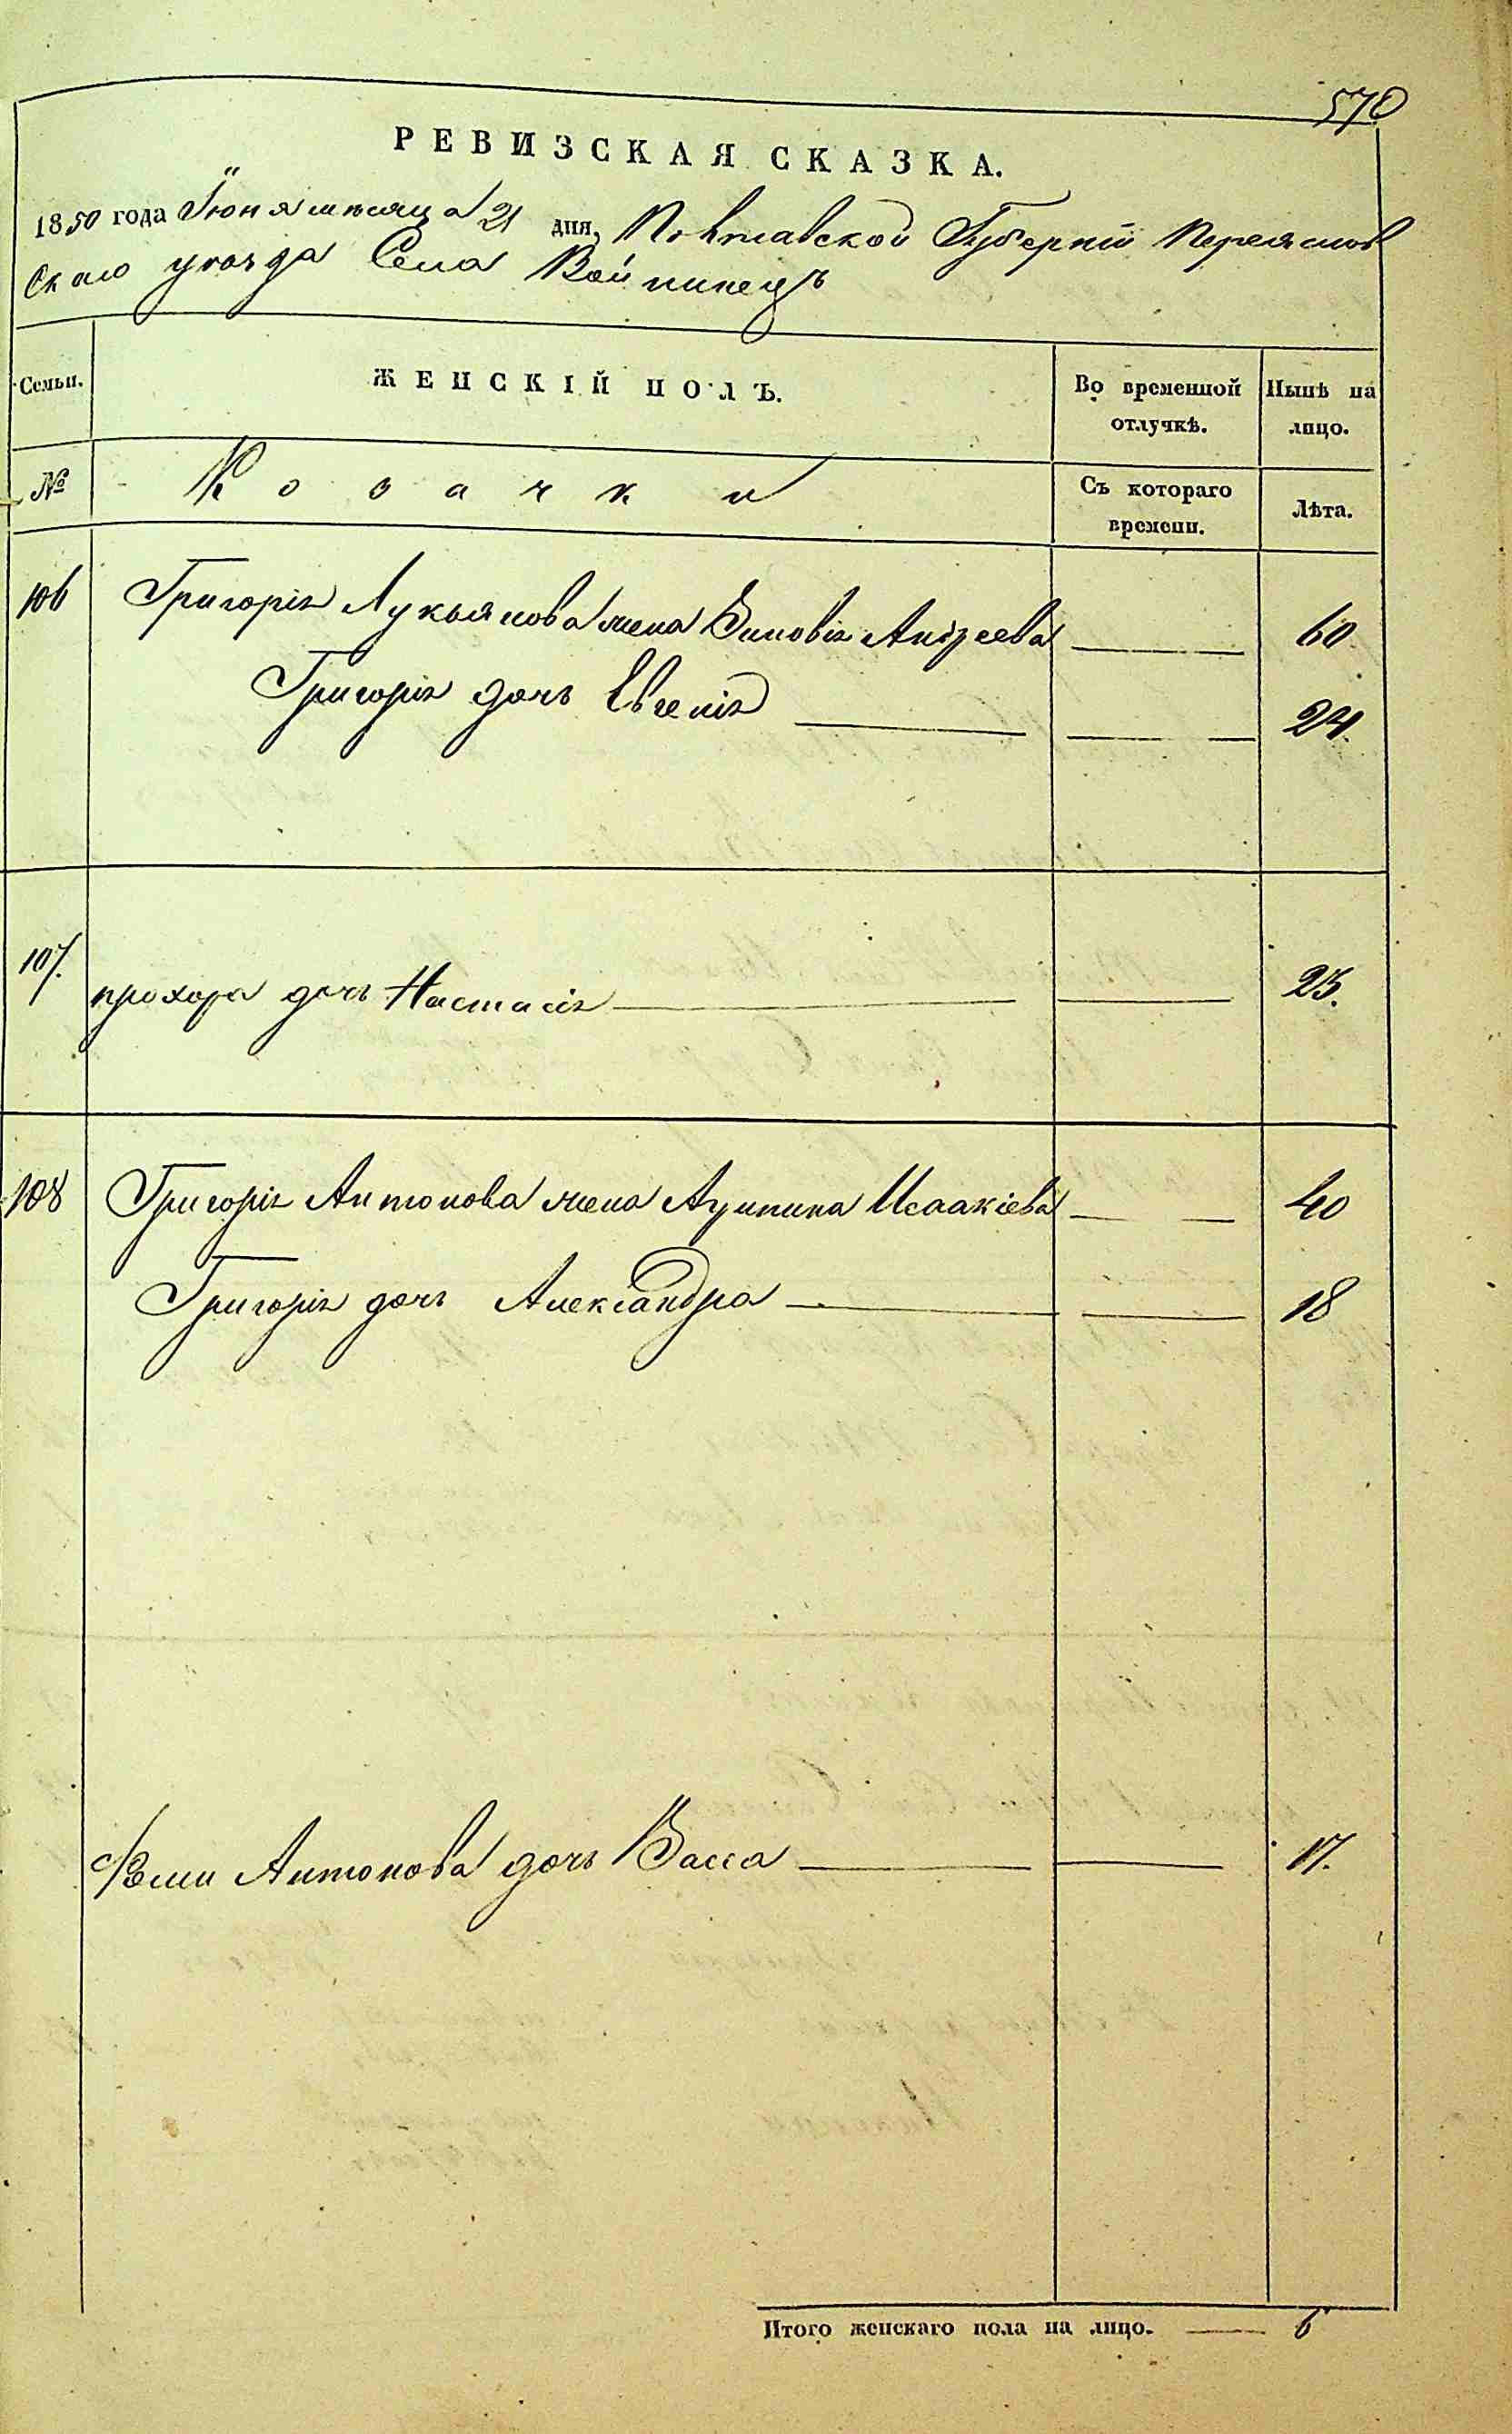 570
РЕВИЗСКАЯ СКАЗКА.
1850 года Іюня месяца 21 дня, Полтавской Губерніи Переяслов
скаго уезда Села Войтинецъ
Семьи.
ЖЕНСКІЙ ПОЛЪ.
Во временной отлучкѣ.
Нынѣ на лицо.
№
Козачки
Съ котораго времени.
Лѣта.
106 Григорія Лукьянова жена Зиновія Андреева 60
Григорія дочь Евгенія 24.
107. прохора дочь Настасія 25.
108 Григорія Антонова жена Акулина Исаакіева 40
Григорія дочь Александра 18
Фомы Антонова дочь Васса 17.
Итого женскаго пола на лицо. 6